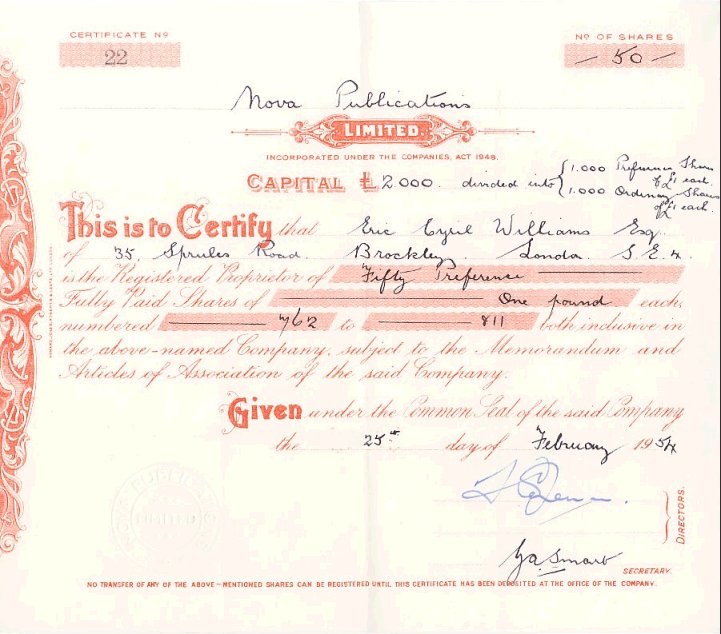 CERTIFICATE No
22
No OF SHARES
— 50 —
Nova Publications
LIMITED.
INCORPORATED UNDER THE COMPANIES, ACT 1948.
CAPITAL £ 2.000. divided into { 1.000 Preference Shares of £1 each.
1.000 Ordinary Shares of £1 each.
This is to Certify that Eric Cyril Williams Esq.
of 35. Sprules Road. Brockley London. S.E.4.
is the Registered Proprietor of Fifty Preference
Fully Paid Shares of One pound each,
numbered 762 to 811 both inclusive in
the above-named Company, subject to the Memorandum and
Articles of Association of the said Company.
Given under the Common Seal of the said Company
the 25th day of February 1954
DIRECTORS.
SECRETARY.
NO TRANSFER OF ANY OF THE ABOVE-MENTIONED SHARES CAN BE REGISTERED UNTIL THIS CERTIFICATE HAS BEEN DEPOSITED AT THE OFFICE OF THE COMPANY.
LIMITED